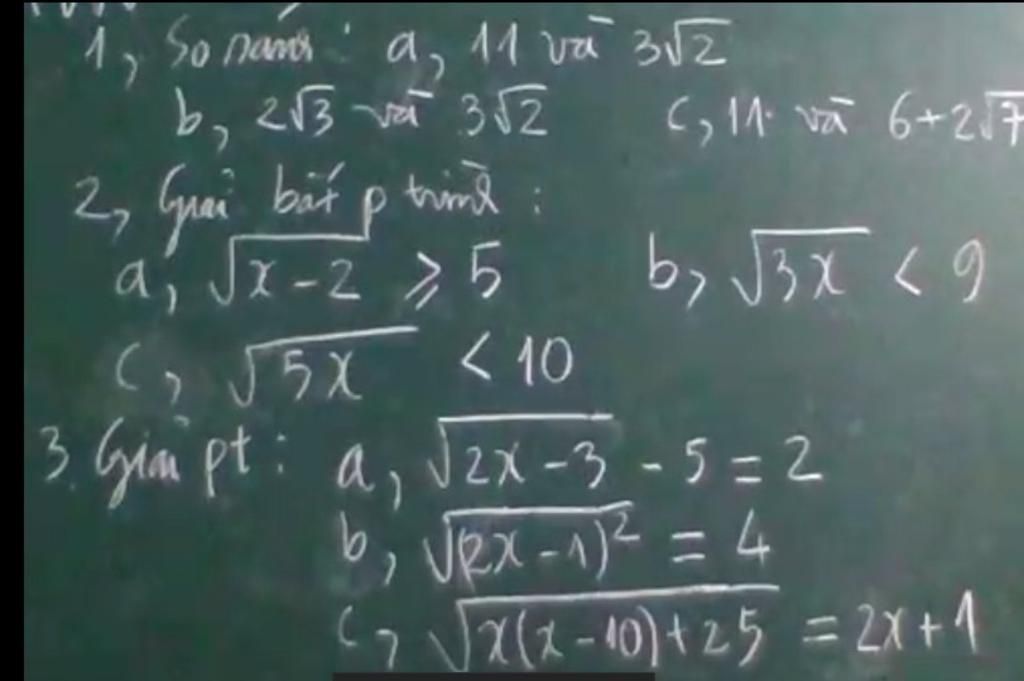 1, So sánh : a, 11 và 3√2
b, 2√3 và 3√2 c, 11 và 6+2√7
2, Giải bất p trình :
a, √x-2 ⩾ 5 b, √3x < 9
c, √5x < 10
3. Giải pt : a, √2x-3 - 5 = 2
b, √(2x-1)² = 4
c, √x(x-10)+25 = 2x+1